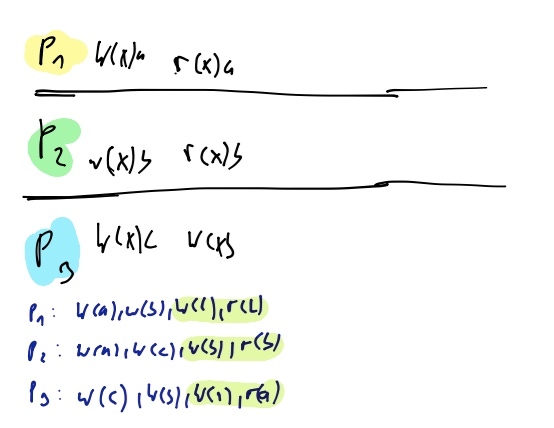 P1 W(x)a r(x)a
P2 W(x)b r(x)b
P3 W(x)c
P1: W(a), W(b), W(c), r(
P2: W(a), W(c), W(b), r(b)
P3: W(c), W(b), r(a)